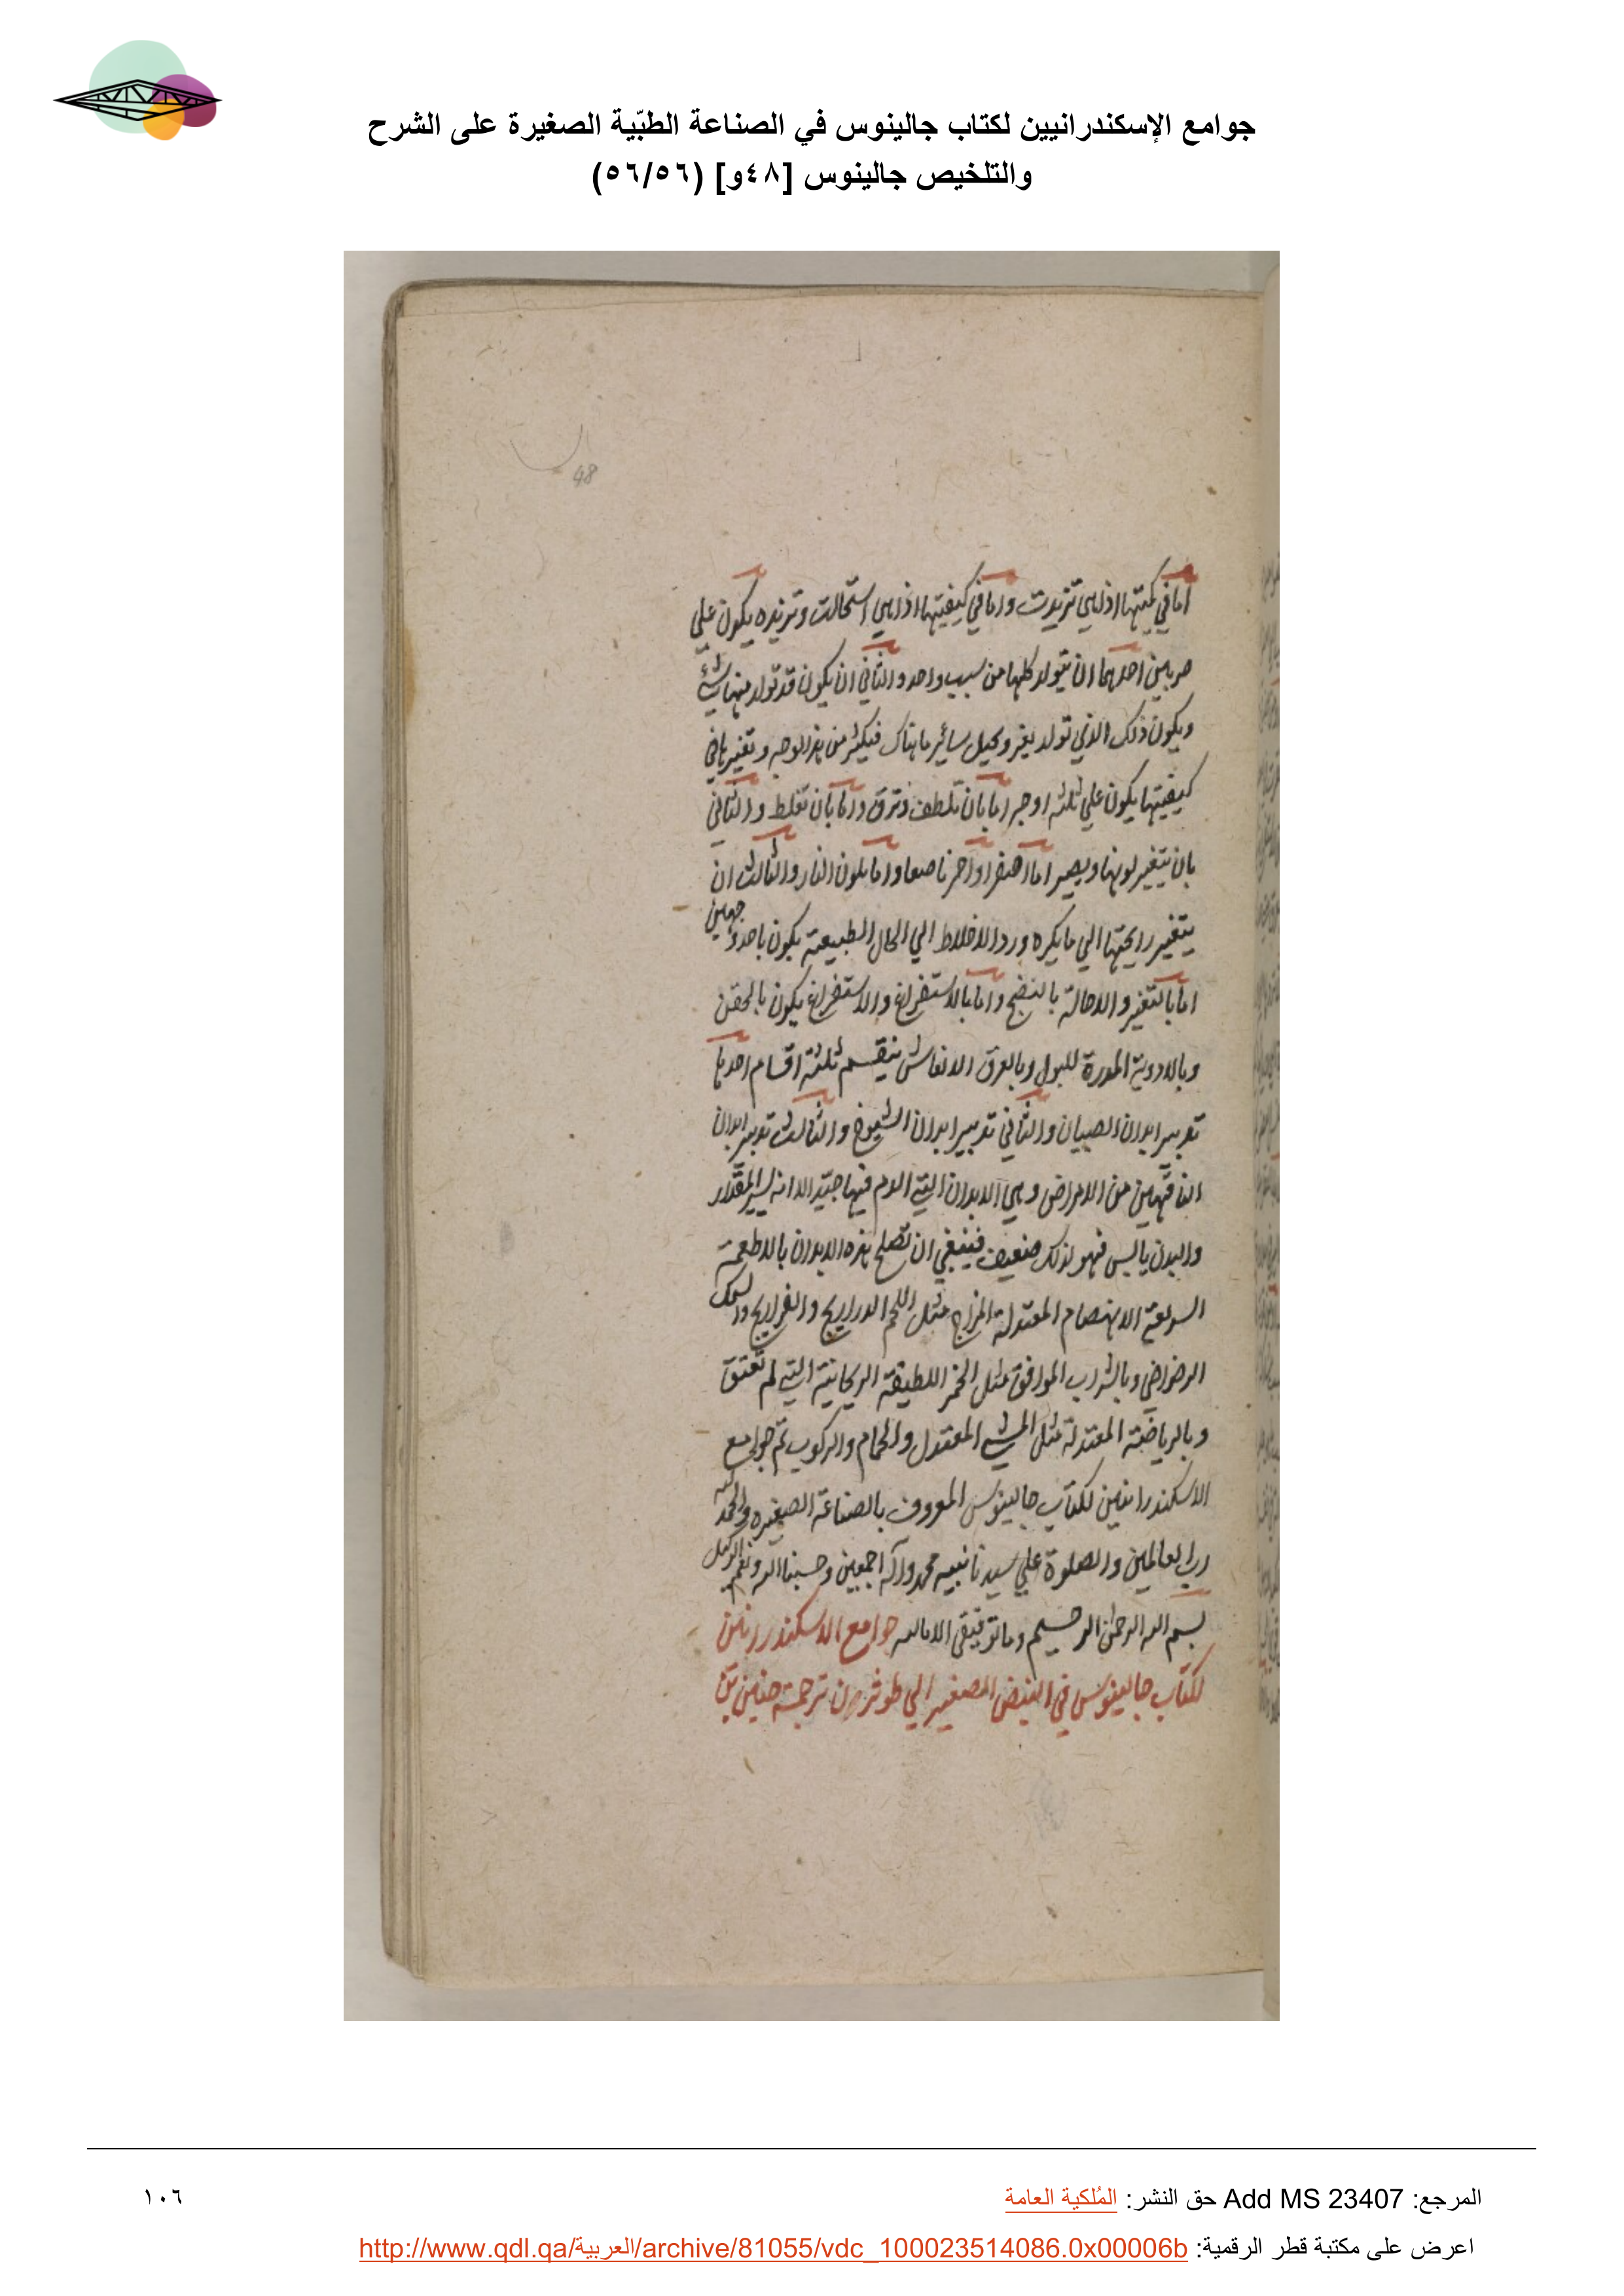 جوامع الإسكندرانيين لكتاب جالينوس في الصناعة الطبّية الصغيرة على الشرح
والتلخيص جالينوس [٤٨و] (٥٦/٥٦)
48
اما في كميتها اذا هي تزيدت واما في كيفيتها اذا هي استحالت وتزيده يكون علي
ضربين احدهما ان يتولد كلها من سبب واحد والثاني ان يكون قد تولد منها شئ
ويكون ذلك الذي تولد يغير ويحيل سائر ما هناك فيكثر من هذا الوجه وتغيرها في
كيفيتها يكون علي ثلثة اوجه اما بان تلطف وترق واما بان تغلظ والثاني
بان يتغير لونها ويصير اما اصفر او احمر ناصعا واما بلون النار والثالث ان
يتغير رايحتها الي ما يكره ورد الاخلاط الي الحال الطبيعية يكون باحد وجهين
اما بالتغير والاحالة بالنضج واما بالاستفراغ والاستفراغ يكون بالحقن
وبالادوية المدرة للبول وبالعرق الانعاش ينقسم ثلثة اقسام احدها
تدبير ابدان الصبيان والثاني تدبير ابدان الشيوخ والثالث تدبير ابدان
الناقهين من الامراض وهي الابدان التي الدم فيها جيد الا انه يسير المقدار
والبدن يابس فهو لذلك ضعيف فينبغي ان تصلح هذه الابدان بالاطعمة
السريعة الانهضام المعتدلة المزاج مثل اللحم الدراريج والفراريج والسمك
الرضراضي وبالشراب الموافق مثل الخمر اللطيفة الريحانية التي لم تعتق
وبالرياضة المعتدلة مثل المشي المعتدل والحمام والركوب تم جوامع
الاسكندرانيين لكتاب جالينوس المعروف بالصناعة الصغيره والحمد لله
رب العالمين والصلوة علي سيدنا نبيه محمد وآله اجمعين وحسبنا الله ونعم الوكيل
بسم الله الرحمن الرحيم وما توفيقي الا بالله جوامع الاسكندرانيين
لكتاب جالينوس في النبض الصغير الي طوثرن ترجمة حنين بن
المرجع: Add MS 23407 حق النشر: المُلكية العامة
١٠٦
اعرض على مكتبة قطر الرقمية: http://www.qdl.qa/العربية/archive/81055/vdc_100023514086.0x00006b